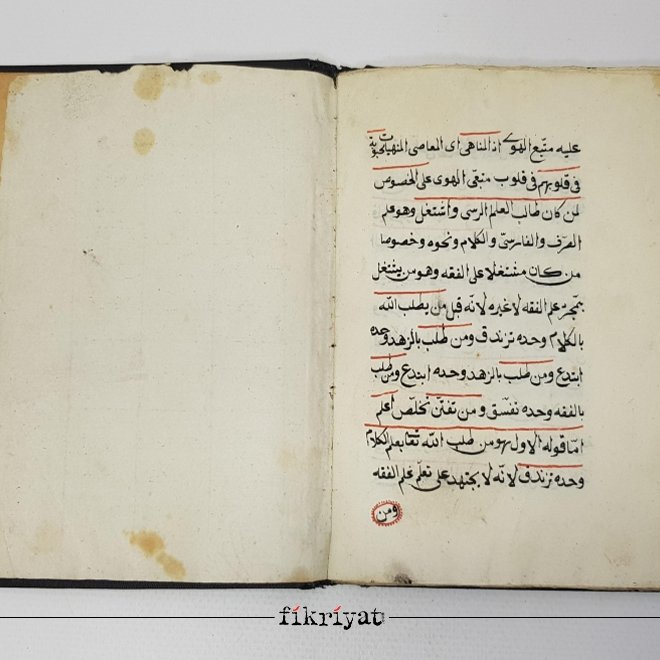 عليه متبع الهوى اذ المناهى اى المعاصى المنهيات
فى قلوبهم فى قلوب متبعى الهوى على الخصوص
لمن كان طالب العلم الرسى واشتغل وهو علم
الصرف والفارسى والكلام ونحوه وخصوصا
من كان مشتغلا على الفقه وهو من يشتغل
بمجرد علم الفقه لا غيره لانه قيل من يطلب الله
بالكلام وحده تزندق ومن طلب بالزهد وحده
ابتدع ومن طلب بالزهد وحده ابتدع ومن طلب
بالفقه وحده تفسق ومن تفنن تخلص اعلم
اما قوله الاول هو من طلب الله تعا بعلم الكلام
وحده تزندق لانه لا يجتهد على تعلم علم الفقه
ومن
fikriyat